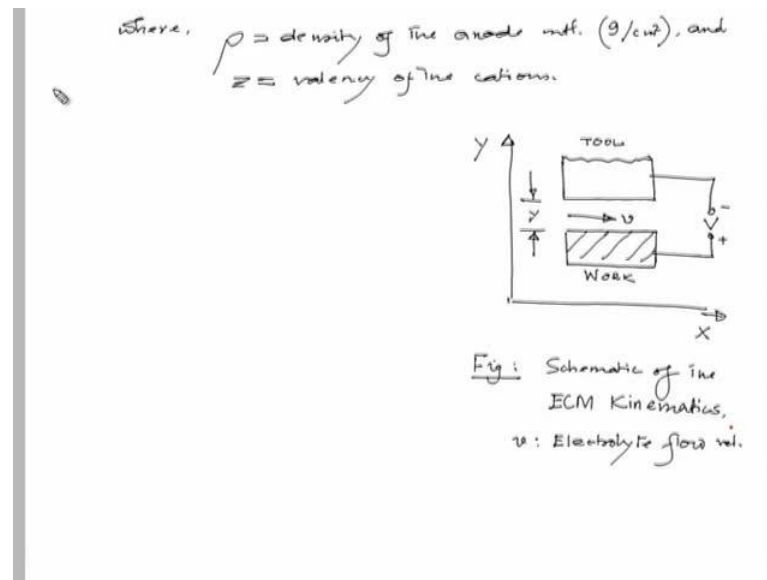 where,
ρ = density of the anode mtl. (g/cm²), and
z = valency of the cations.
Y
TOOL
y
v
-
V
+
WORK
X
Fig: Schematic of the
ECM Kinematics,
v: Electrolyte flow vel.